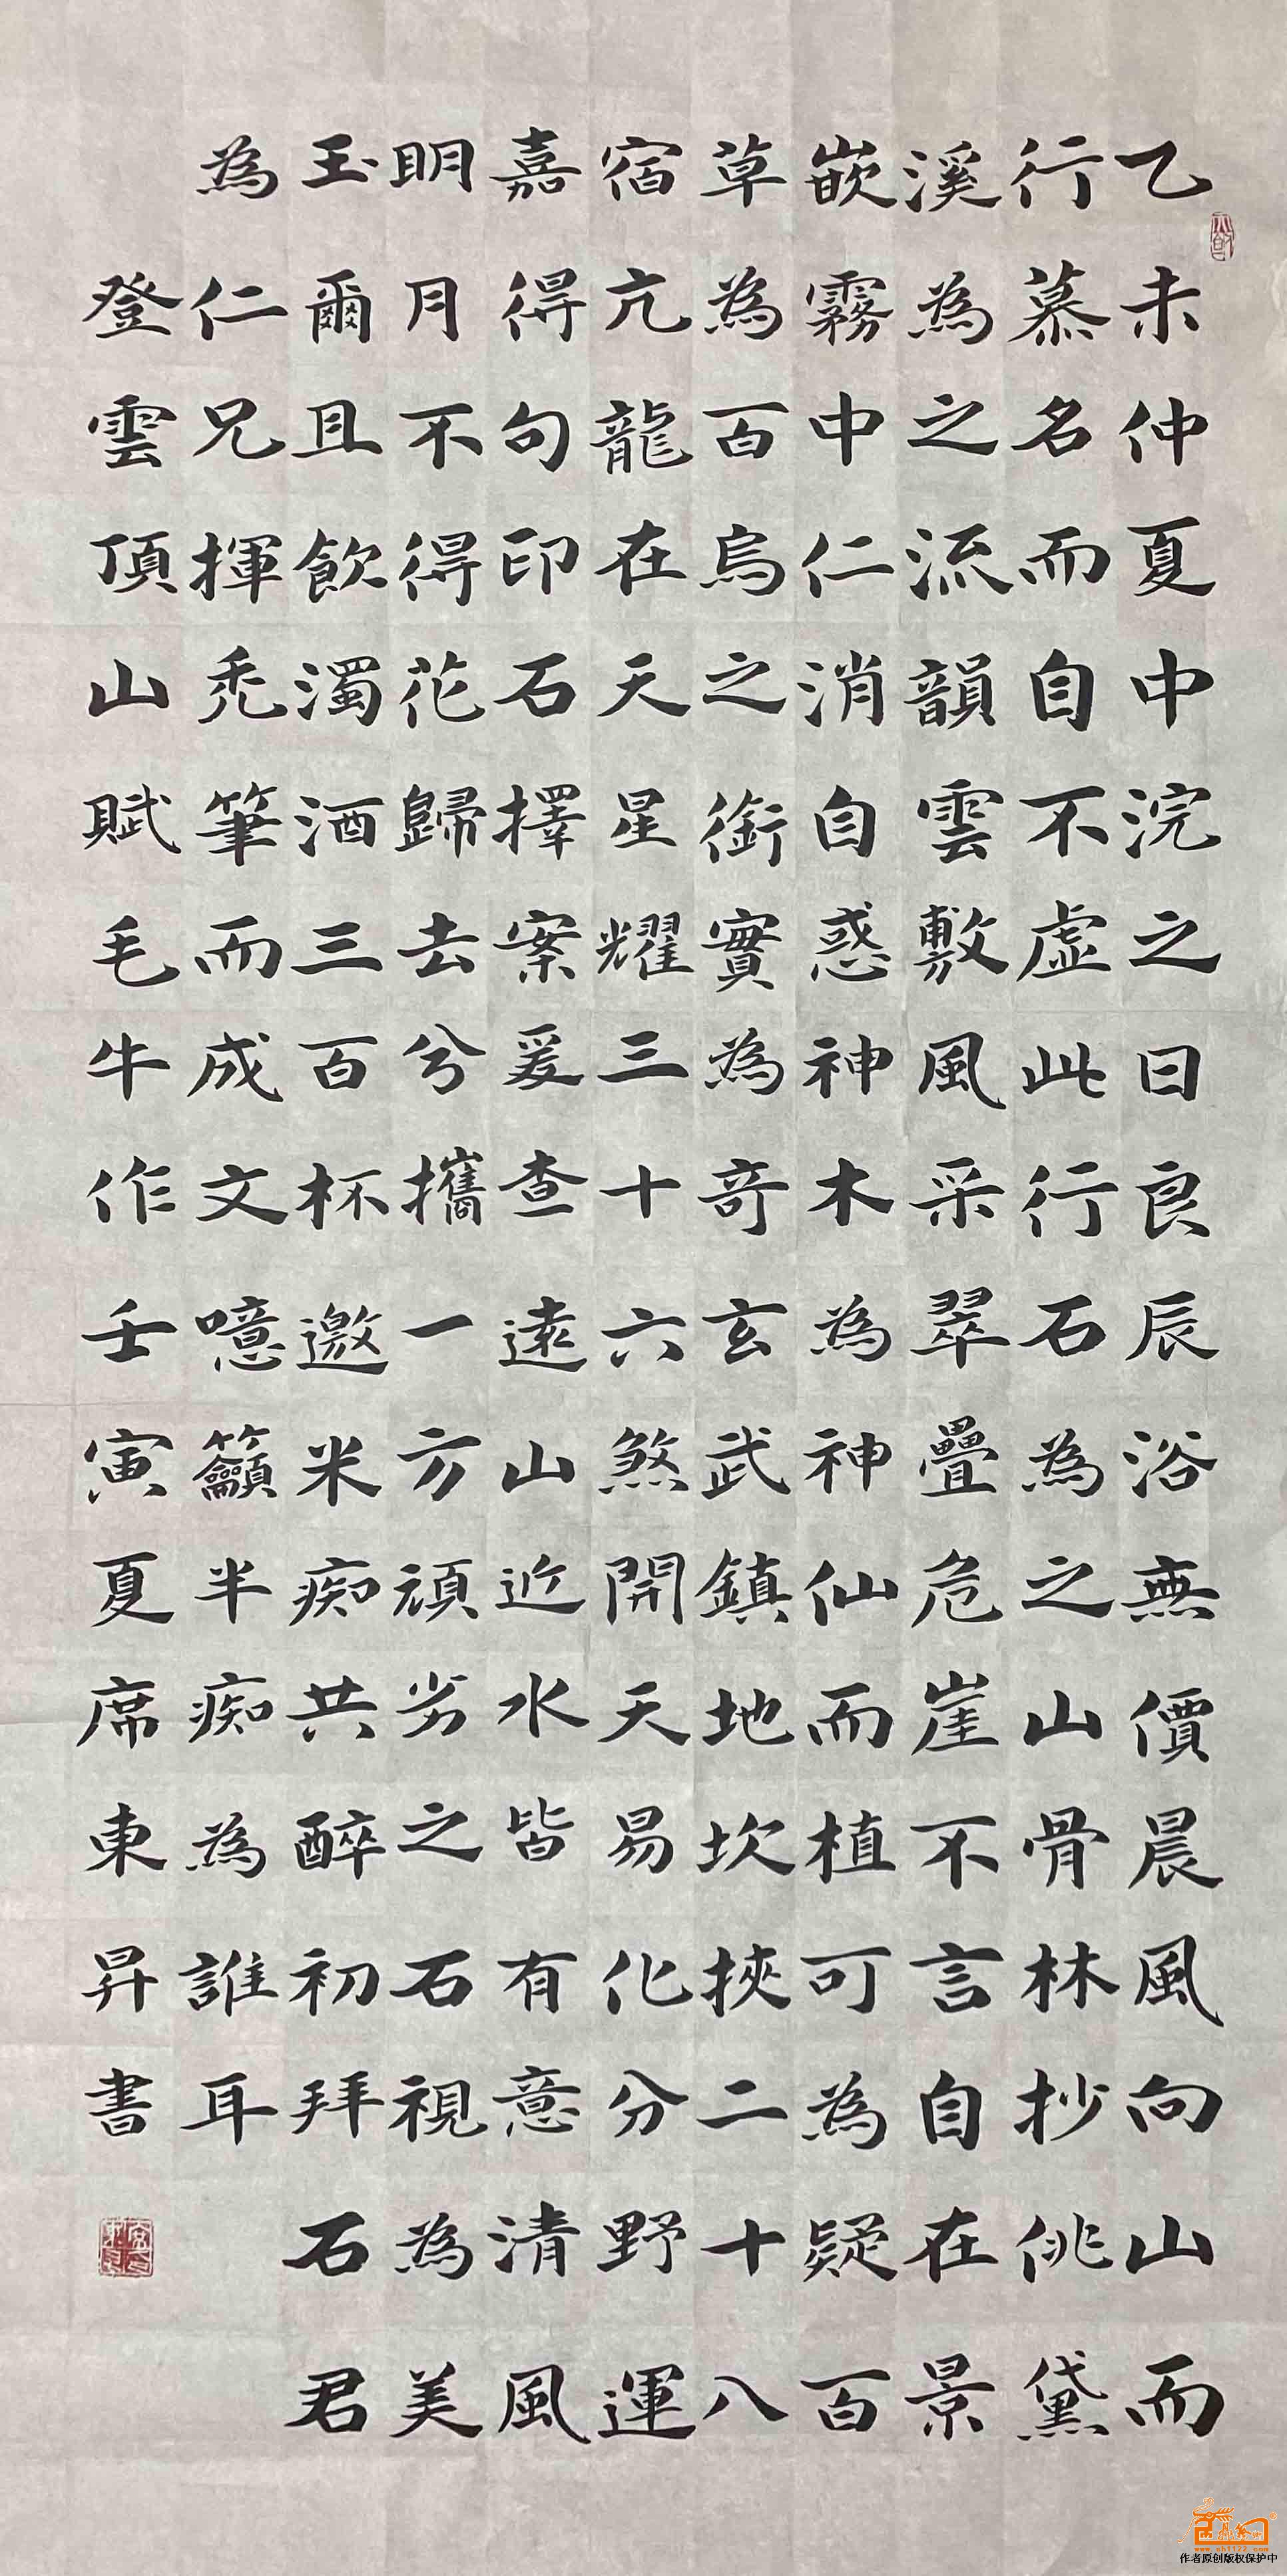 乙未仲夏中浣之日良辰浴無價晨風向山而
行慕名而自不虛此行石為之山骨林抄佻黛
溪為之流韻雲敷風采翠疊危崖不言自在景
嵌霧中仁消自惑神木為神仙而植可為疑百
草為百烏之銜實為奇玄武鎮地坎挾二十八
宿亢龍在天星耀三十六煞開天易化分野運
嘉得句印石擇案爰查遠山近水皆有意清風
明月不得花歸去兮攜一方頑劣之石視為美
玉爾且飲濁酒三百杯邀米痴共醉初拜石君
為仁兄揮禿筆而成文噫籲半痴為誰耳
登雲頂山賦毛牛作壬寅夏席東昇書
作者原创版权保护中